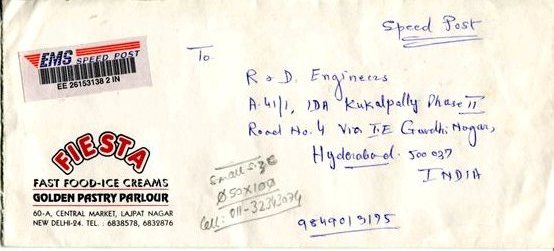 EMS SPEED POST
EE 26153138 2 IN
Speed Post
To
R & D. Engineers
A-41/1, IDA Kukalpally Phase II
Road No. 4 Via I.E Gandhi Nagar,
Hyderabad - 500037
INDIA
9849013195
Small size
050x100
Cell: 011-32342074
FIESTA
FAST FOOD-ICE CREAMS
GOLDEN PASTRY PARLOUR
60-A, CENTRAL MARKET, LAJPAT NAGAR
NEW DELHI-24. TEL. : 6838578, 6832876